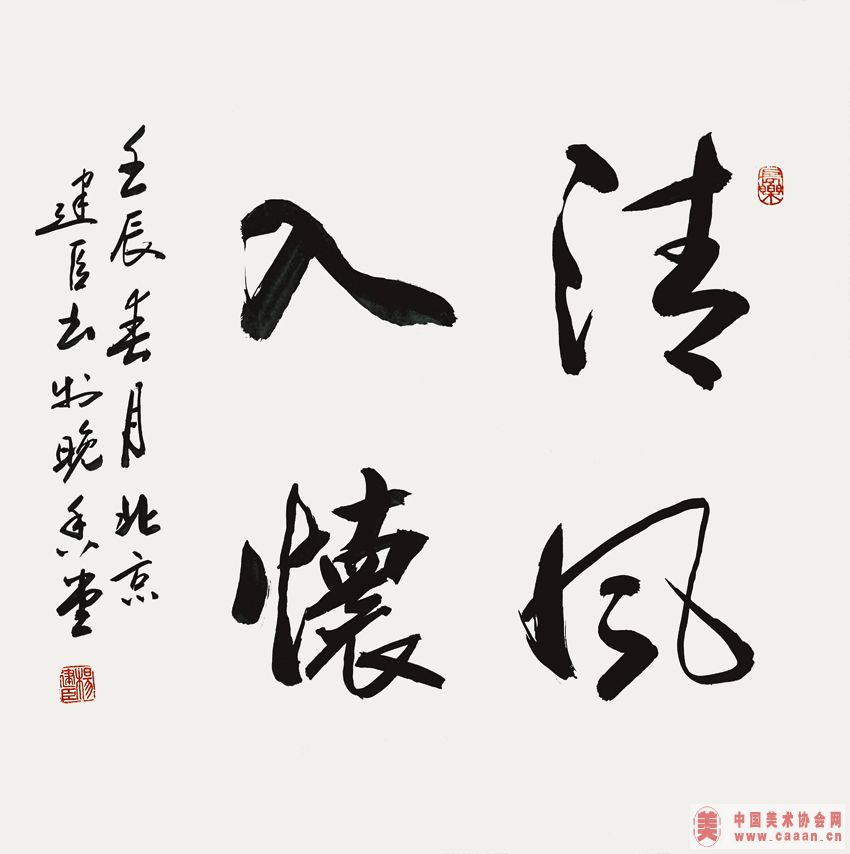 清風
入懷
壬辰春月北京
建臣書於晚香堂
楊建臣
中国美术协会网
www.caaan.cn